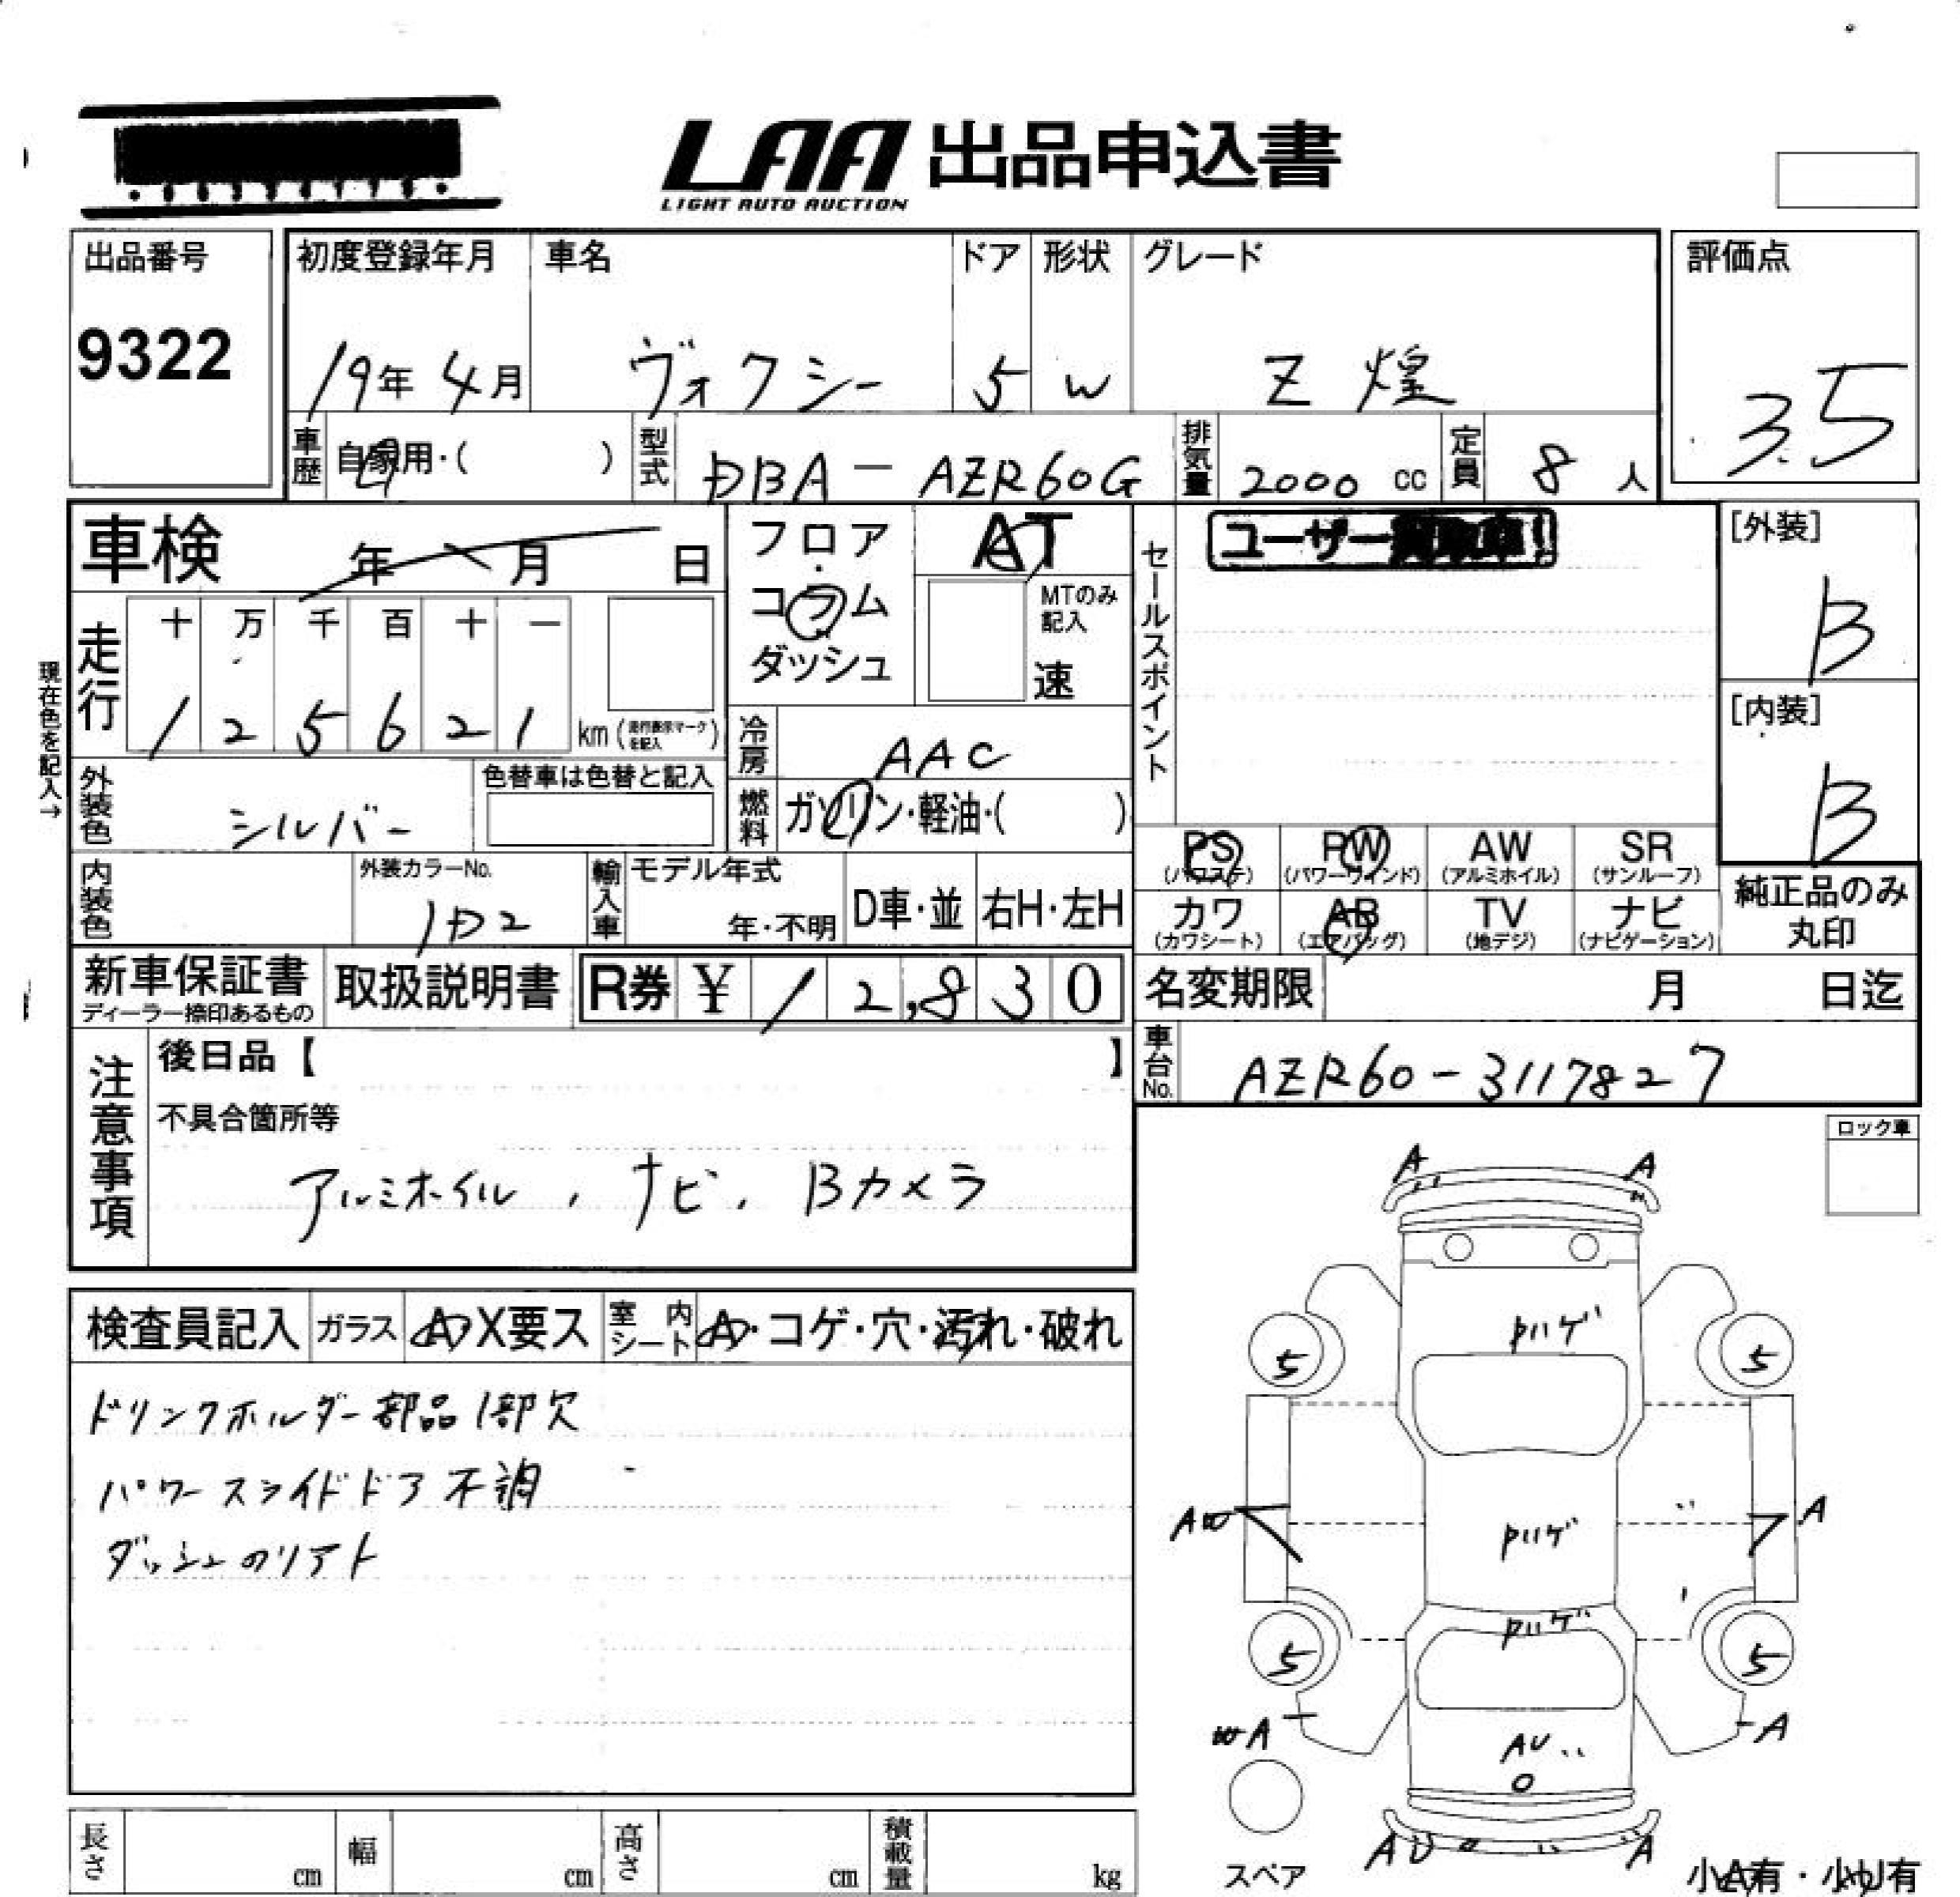 LAA 出品申込書
LIGHT AUTO AUCTION
出品番号
9322
初度登録年月 車名 ドア 形状 グレード
19年 4月 ヴォクシー 5 W Z 煌
評価点
3.5
車歴 自家用・( ) 型式 DBA-AZR60G 排気量 2000 cc 定員 8 人
車検 年 月 日
フロア・コラム ダッシュ
AT
MTのみ記入
速
セールスポイント
ユーザー
[外装]
B
[内装]
B
現在色を記入→
走行 十 万 千 百 十 一
1 2 5 6 2 1 km
冷房 AAC
燃料 ガソリン・軽油・( )
外装色 シルバー
色替車は色替と記入
内装色
外装カラーNo.
1D2
輸入車 モデル年式
年・不明 D車・並 右H・左H
PS (パワステ) PW (パワーウィンド) AW (アルミホイル) SR (サンルーフ)
カワ (カワシート) AB (エアバッグ) TV (地デジ) ナビ (ナビゲーション)
純正品のみ丸印
新車保証書
ディーラー捺印あるもの
取扱説明書
R券 ¥ 12,830
名変期限 月 日迄
車台No. AZR60-3117827
注意事項
後日品【 】
不具合箇所等
アルミホイル、ナビ、Bカメラ
ロック車
検査員記入 ガラス A・X要ス 室内シート A・コゲ・穴・汚れ・破れ
ドリンクホルダー部品1部欠
パワースライドドア不調
ダッシュのリアト
A A
ハゲ
5 5
A
ハゲ
A
ハゲ
5 5
A
A
AU
スペア
AU A
小A有・小U有
長さ cm 幅 cm 高さ cm 積載量 kg